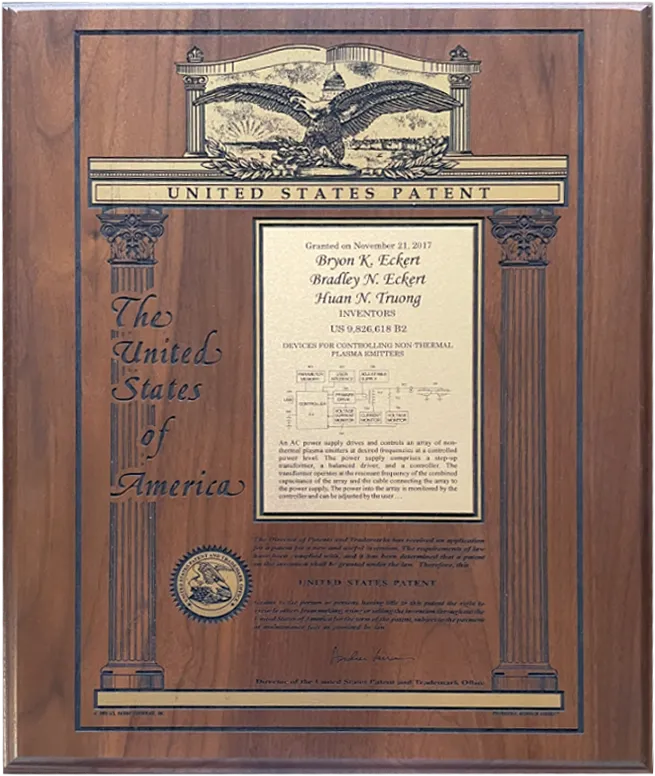 UNITED STATES PATENT
The
United
States
of
America
Granted on November 21, 2017
Bryon K. Eckert
Bradley N. Eckert
Huan N. Truong
INVENTORS
US 9,826,618 B2
DEVICES FOR CONTROLLING NON-THERMAL
PLASMA EMITTERS
PARAMETER
MEMORY
USER
INTERFACE
ADJUSTABLE
SUPPLY
CONTROLLER
PRIMARY
DRIVE
VOLTAGE
CURRENT
MONITOR
CURRENT
MONITOR
VOLTAGE
MONITOR
An AC power supply drives and controls an array of non-
thermal plasma emitters at desired frequencies at a controlled
power level. The power supply comprises a step-up
transformer, a balanced driver, and a controller. The
transformer operates at the resonant frequency of the combined
capacitance of the array and the cable connecting the array to
the power supply. The power into the array is monitored by the
controller and can be adjusted by the user . . .
The Director of Patents and Trademarks has received an application
for a patent for a new and useful invention. The requirements of law
have been complied with, and it has been determined that a patent
on the invention shall be granted under the law. Therefore, this
UNITED STATES PATENT
Grants to the person or persons having title to this patent the right to
exclude others from making, using or selling the invention throughout the
United States of America for the term of the patent, subject to the payment
of maintenance fees as provided by law.
Director of the United States Patent and Trademark Office